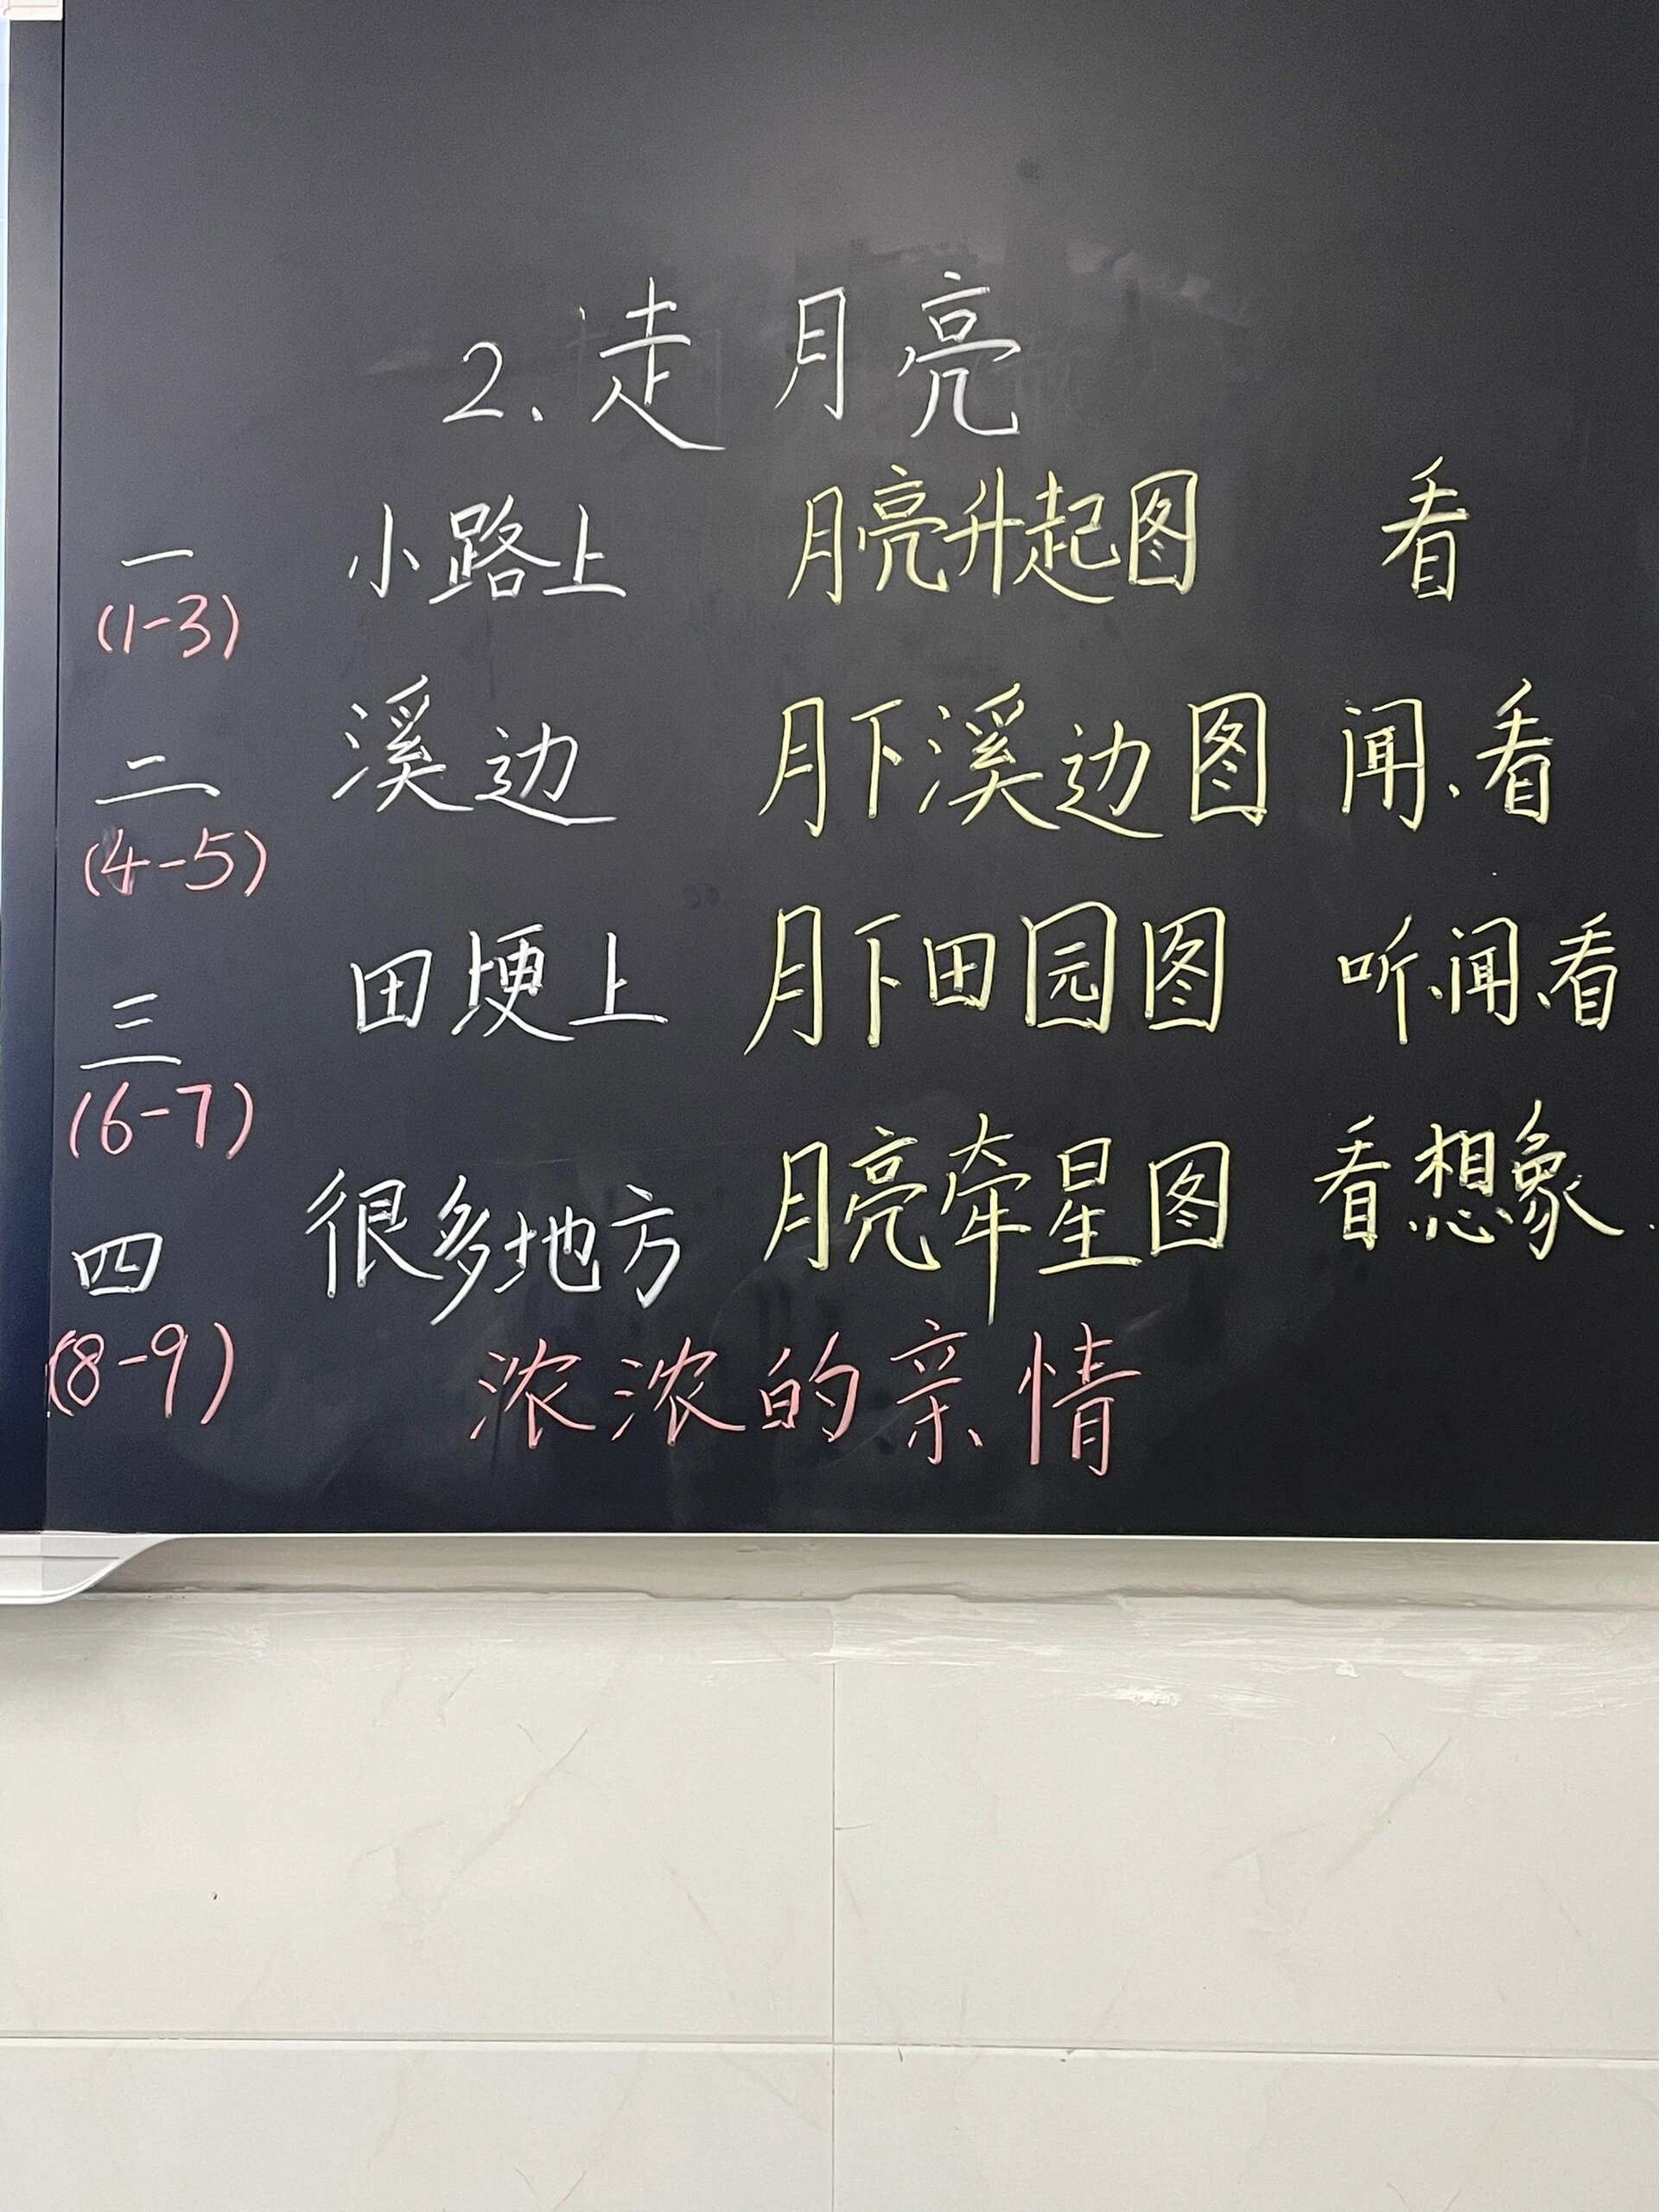 2.走月亮
一 小路上 月亮升起图 看
(1-3)
二 溪边 月下溪边图 闻、看
(4-5)
三 田埂上 月下田园图 听、闻、看
(6-7)
四 很多地方 月亮牵星图 看、想象
(8-9)
浓浓的亲情